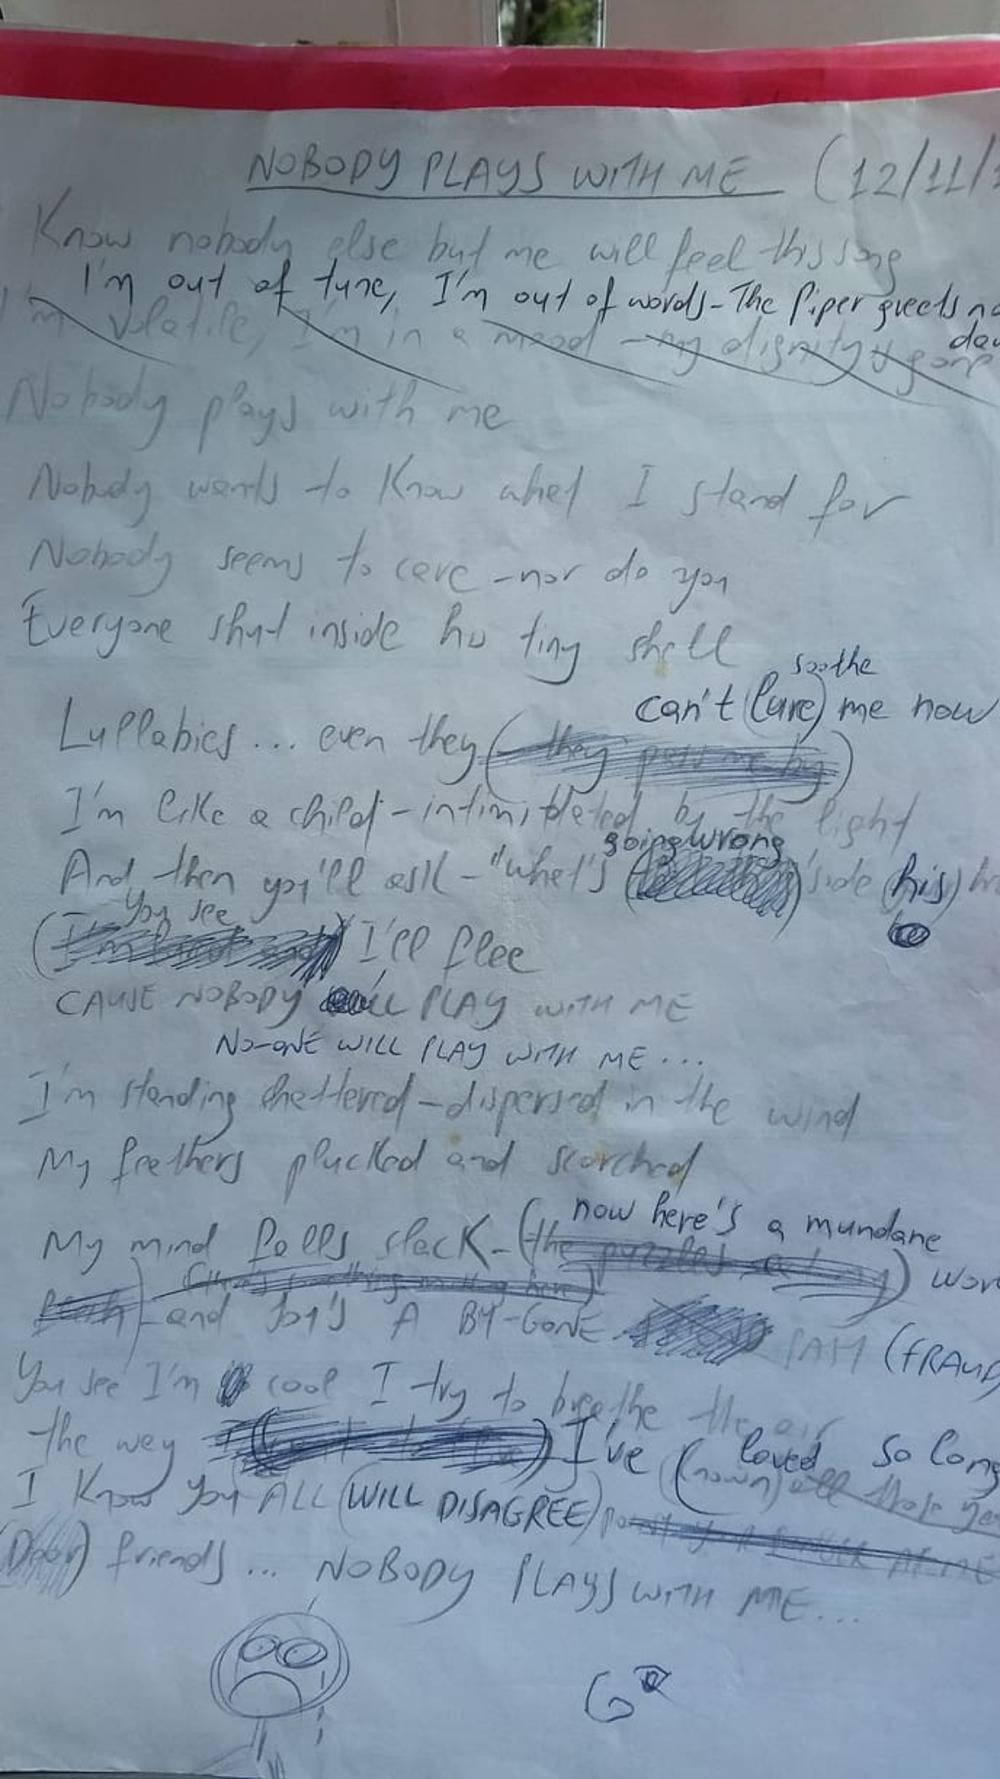 NOBODY PLAYS WITH ME (12/11/
Know nobody else but me will feel this song
I'm out of tune, I'm out of words - The Piper greets
I'm volatile, I'm in a mood - my dignity's gone
Nobody plays with me
Nobody wants to know what I stand for
Nobody seems to care - nor do you
Everyone shut inside his tiny shell
soothe
can't (lure) me now
Lullabies... even they (they pass me by)
I'm like a child - intimidated by the light
going wrong
And then you'll ask - "what's 'side (his)
You see
I'll flee
CAUSE NOBODY 'LL PLAY WITH ME
NO-ONE WILL PLAY WITH ME...
I'm standing shattered - dispersed in the wind
My feathers plucked and scorched
now here's a mundane
My mind falls slack - (the puzzles
and joy's A BY-GONE (FRAUD)
You see I'm cool I try to breathe the air
the way I've loved so long
(known) all those
I know you ALL (WILL DISAGREE) point your FINGER AT ME
(Dear) friends... NOBODY PLAYS WITH ME...
G